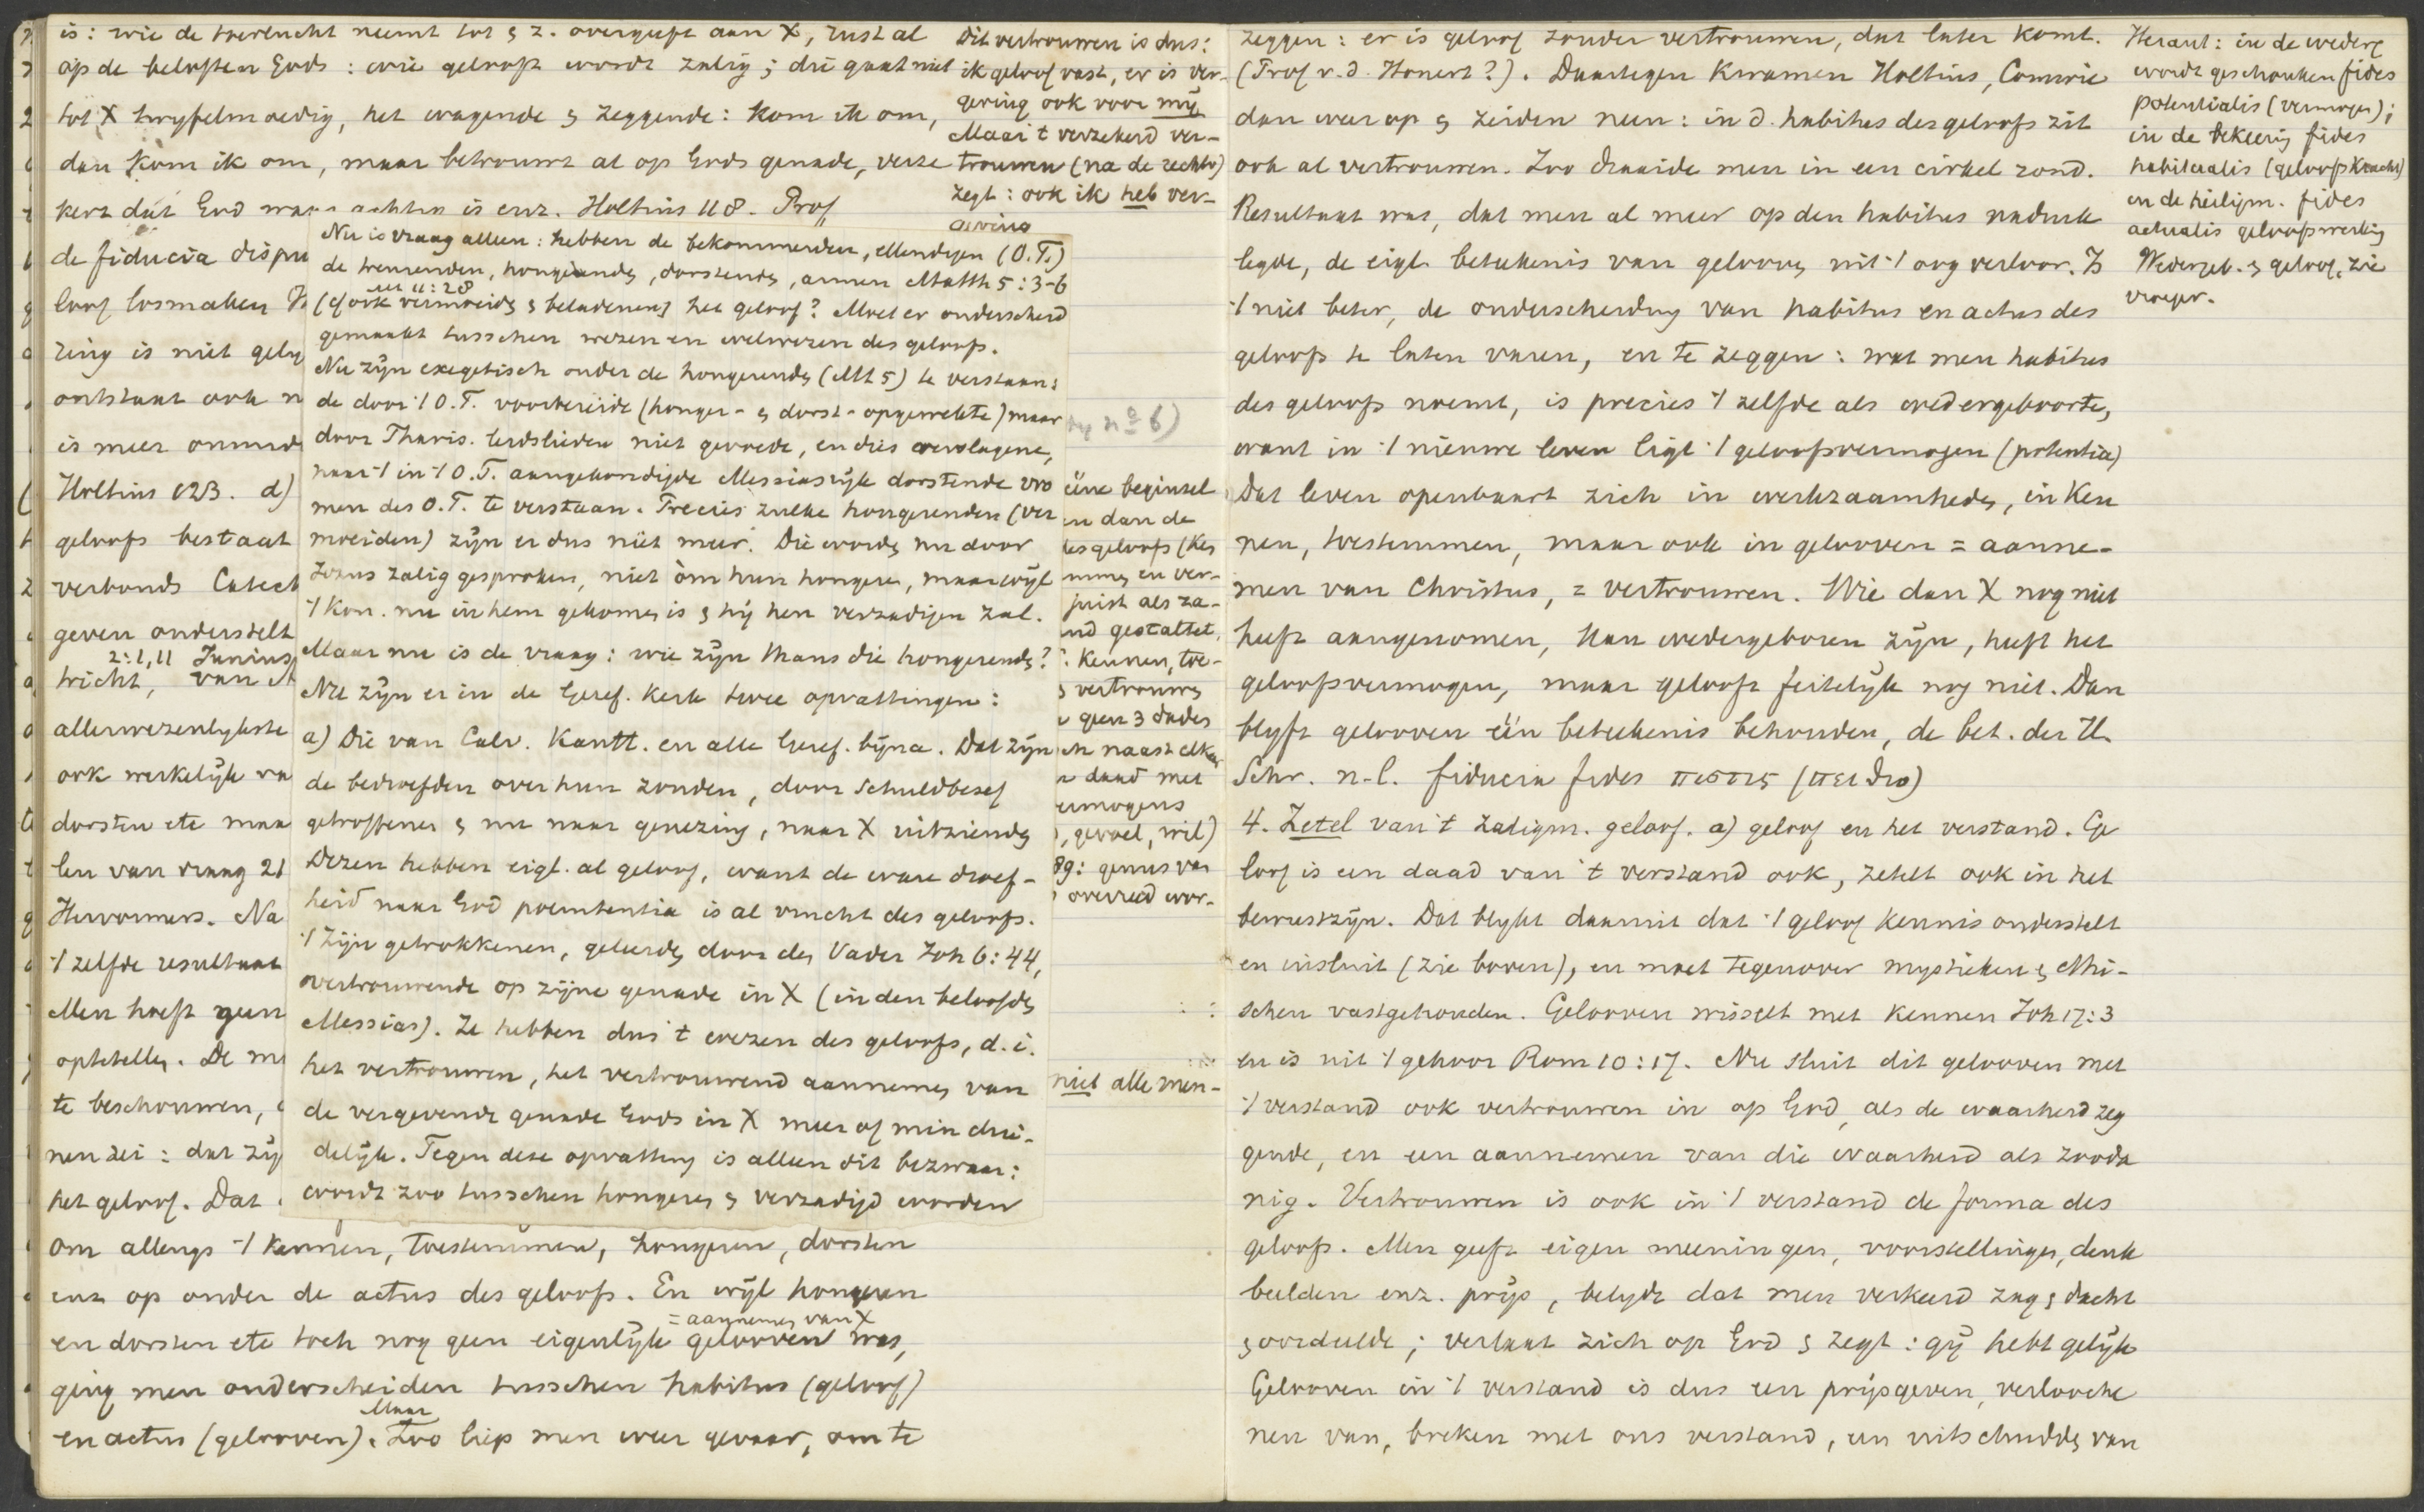 is: wie de toevlucht neemt tot & z. overgeeft aan X, rust al
op de beloften Gods: wie gelooft wordt zalig; die gaat niet
tot X twyfelmoedig, het wagende & zeggende: kom ik om,
dan kom ik om, maar betrouwt al op Gods genade, verze
kert dat God
achten is enz. Holtius 118. Prof
de fiducia dispu
loof losmaken
zing is niet gely
ontstaat ook n
is meer onmid
Holtius 123. d)
geloofs bestaat
verbonds Catech
geven onderstelt
2:1,11 Junius
tricht, van
allerwezenlykste
ook werkelÿk va
dorsten etc maa
len van vraag 21
Hervormers. Na
't zelfde resultaat
Men hoeft geen
optetellen. De me
te beschouwen,
nen zei: dat zÿ
het geloof. Dat
om allengs 't kennen, toestemmen, hongeren, dorsten
enz op onder de actus des geloofs. En wÿl hongeren
= aannemen van X
en dorsten etc toch nog geen eigenlÿk gelooven was,
ging men onderscheiden tusschen habitus (geloof)
Maar
en actus (gelooven). Zoo liep men weer gevaar, om te
Dit vertrouwen is dus:
ik geloof vast, er is ver-
geving ook voor mÿ
Maar 't verzekerd ver-
trouwen (na de rechtv)
zegt: ook ik heb ver-
geving
Nu is vraag alleen: hebben de bekommerden, ellendigen (O.T.)
de treurenden, hongerenden, dorstenden, armen Matth 5:3-6
11:28
(of ook vermoeide & beladenen) het geloof? Moet er onderscheid
gemaakt tusschen wezen en welwezen des geloofs.
Nu zÿn exegetisch onder de hongerenden (Mt 5) te verstaan:
de door 't O.T. voorbereide (honger- & dorst-opgewekte) maar
door Pharis. leidslieden niet gevoede, en dies
naar 't in 't O.T. aangekondigde Messiasrÿk dorstende vro
men des O.T. te verstaan. Precies zulke hongerenden (ver
moeiden) zÿn er dus niet meer. Die worden nu door
Jezus zalig gesproken, niet òm hun hongeren, maar wÿl
't Kon. nu in hem gekomen is & hÿ hen verzadigen zal.
Maar nu is de vraag: wie zÿn thans die hongerenden?
Nu zÿn er in de Geref. kerk twee opvattingen:
a) Die van Calv. Kantt. en alle Geref. bÿna. Dat zÿn
de bedroefden over hun zonden, door schuldbesef
getroffenen & nu naar genezing, naar X uitziende
Dezen hebben eigl. al geloof, want de ware droef-
heid naar God poenitentia is al vrucht des geloofs.
't Zÿn getrokkenen, geleerden door den Vader Joh 6:44,
vertrouwende op zÿne genade in X (in den beloofden
Messias). Ze hebben dus 't wezen des geloofs, d.i.
het vertrouwen, het vertrouwend aannemen van
de vergevende genade Gods in X meer of min dui-
delÿk. Tegen deze opvatting is alleen dit bezwaar:
wordt zoo tusschen hongeren & verzadigd worden
no 6)
ééne beginsel
en dan de
des geloofs (ken
nen en ver-
juist als za-
nd gestaltet,
: kennen, toe-
& vertrouwen
geen 3 daden
en naast elkaar
daad met
vermogens
, gevoel, wil)
89: genus van
overreed wor-
niet alle men-
zeggen: er is geloof zonder vertrouwen, dat later komt.
(Prof v.d. Honert?). Daartegen kwamen Holtius, Comrie
dan weer op & zeiden neen: in d. habitus des geloofs zit
ook al vertrouwen. Zoo draaide men in een cirkel rond.
Resultaat was, dat men al meer op den habitus nadruk
legde, de eigl. betekenis van gelooven uit 't oog verloor. Is
't niet beter, de onderscheiding van habitus en actus des
geloofs te laten varen, en te zeggen: wat men habitus
des geloofs noemt, is precies 't zelfde als wedergeboorte,
want in 't nieuwe leven ligt 't geloofsvermogen (potentia)
Dat leven openbaart zich in werkzaamheden, in ken
nen, toestemmen, maar ook in gelooven = aanne-
men van Christus, = vertrouwen. Wie dan X nog niet
heeft aangenomen, kan wedergeboren zÿn, heeft het
geloofsvermogen, maar gelooft feitelÿk nog niet. Dan
blyft gelooven één betekenis behouden, de bet. der H.
Schr. n.l. fiducia fides πιστις (πειθω)
4. Zetel van 't zaligm. geloof. a) geloof en het verstand. Ge
loof is een daad van 't verstand ook, zetelt ook in het
bewustzÿn. Dat blykt daaruit dat 't geloof kennis onderstelt
en insluit (zie boven), en moet tegenover mystieken & ethi-
schen vastgehouden. Gelooven wisselt met kennen Joh 17:3
en is uit 't gehoor Rom 10:17. Nu sluit dit gelooven met
't verstand ook vertrouwen in op God, als de waarheid zeg
gende, en een aannemen van die waarheid als zooda
nig. Vertrouwen is ook in 't verstand de forma des
geloofs. Men geeft eigen meeningen, voorstellingen, denk
beelden enz. prÿs, belÿdt dat men verkeerd zag & dacht
& oordeelde; verlaat zich op God & zegt: gÿ hebt gelÿk
Gelooven in 't verstand is dus een prÿsgeven, verlooche
nen van, breken met ons verstand, een uitschudden van
Heraut: in de wederg
wordt geschonken fides
potentialis (vermogen);
in de bekeering fides
habitualis (geloofskracht)
en de heiligm. fides
actualis geloofswerking
Wedergeb. & geloof, zie
vroeger.